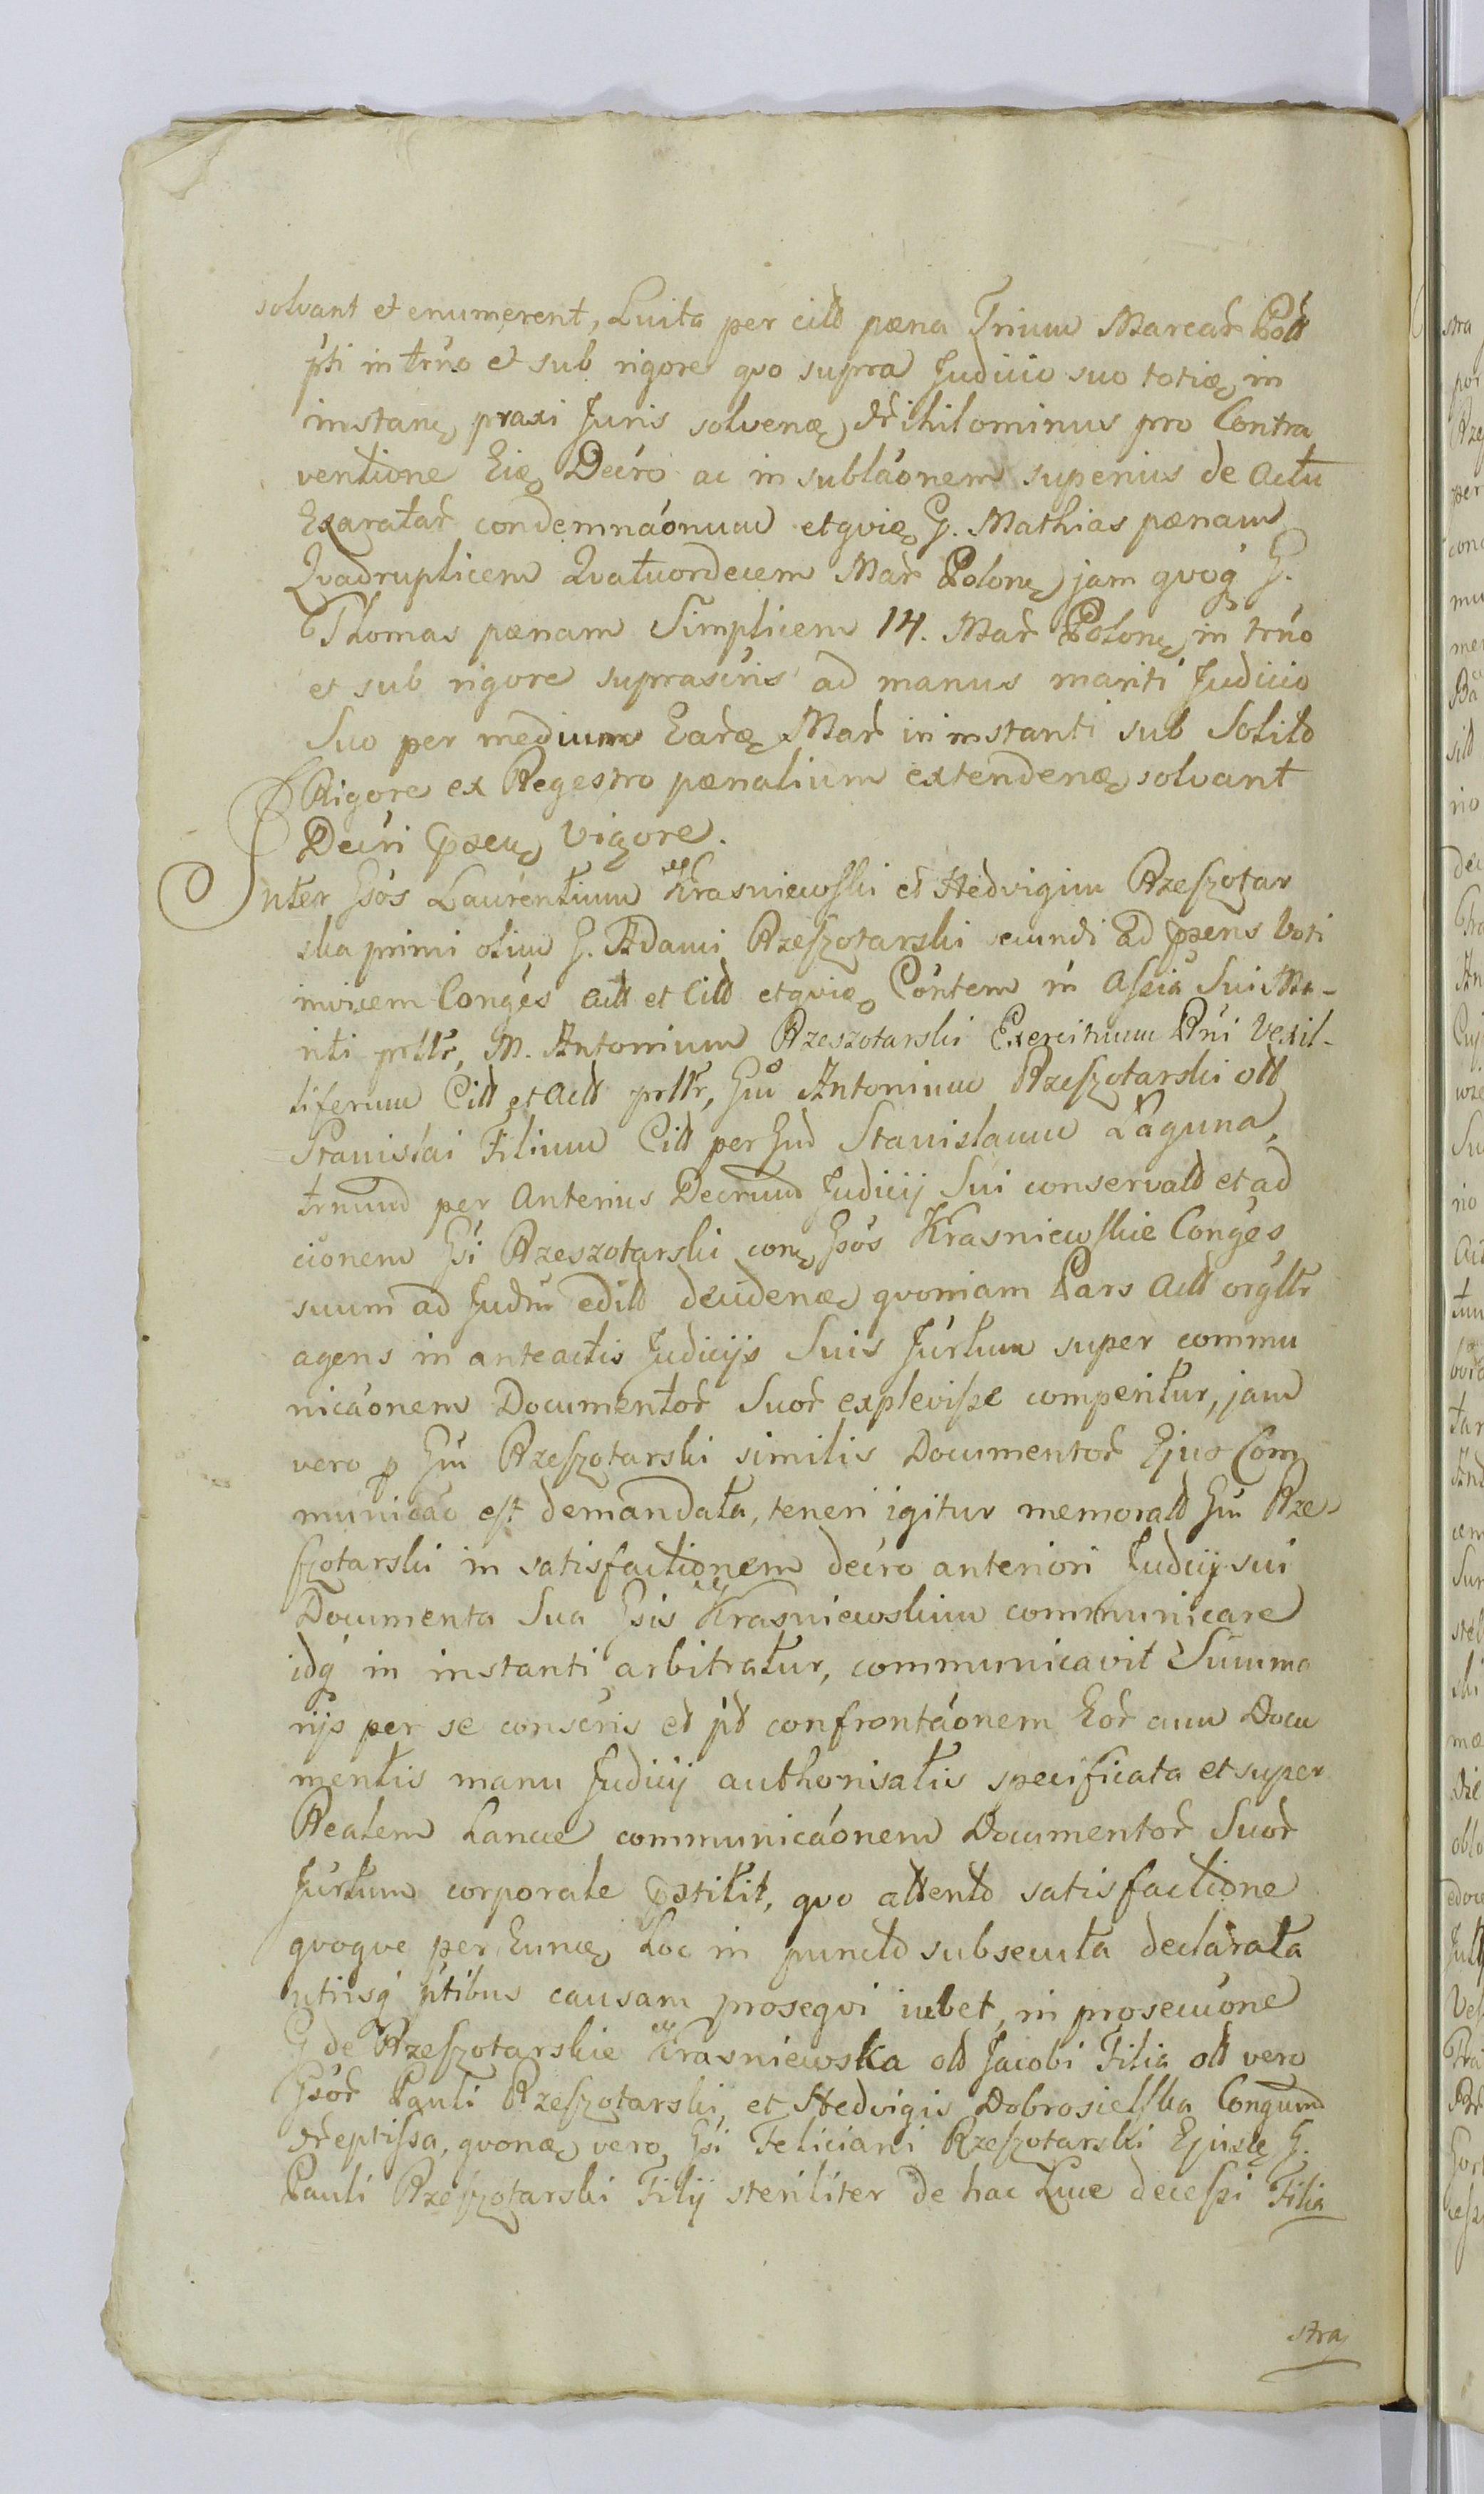 solvant et enumerent, Luita per citd pæna Trium Marcar Poll
pti in trno et sub rigore qvo supra Judicio suo totiæ in
instanę praxi Juris solvenæ, Nihilominus pro Contra
ventione Eiæ Decro ac in subláonem superius de actu
Exaratar condemnáonum etqviæ G. Mathias pænam
Qvadruplicem Qvatuordecem Mar Polonę jam qvoq G.
Thomas pænam Simplicem 14. Mar Polonę in trno
et sub rigore suprascris ad manus mariti Judicio
Suo per medium Earæ Mar in instanti sub Solito
Rigore ex Regestro pænalium extendenæ solvant
Decri pxenę Vigore.
Inter Gsos Laurentium Krasniewski et Hedvigim Rzeszotar
ska primi olim G. Adami Rzeszotarski secundi ad pxens Voti
invicem Conges act et Citt etqviæ Contem in assia Sui Ma-
riti prttr, M. Antonium Rzeszotarski Exercituum Rni Vexil-
liferum Citt et Actt prttr, Gm Antonium Rzeszotarski ott
Stanislai Filium Citt per Gnd Stanislaum Łaguna,
trnund per Anterius Decrum Judicij Sui conservatt et ad
cionem Gsi Rzeszotarski conę Gsos Krasniewskie Conges
suum ad Judm editt decidenæ qvoniam Pars actt orgttr
agens in anteactis Judicijs Suis Jurtum super commu
nicáonem Documentor Suor explevisse comperitur, jam
vero p Gm Rzeszotarski similis Documentor Ejus Com
municáo est demandata, teneri igitur memoratt Gm Rze-
szotarski in satisfactionem decro anteriori Judicij sui
Documenta Sua Gsis Krasniewskim communicare
idq in instanti arbitratur, communicavit Summa
rijs per se conscris et pt confrontáonem Eor cum Docu
mentis manu Judicij authorisatis specificata et super
Realem Lance communicáonem Documentor Suor
Jurtum corporale pxstitit, qvo attento satisfactione
qvoqve per Eunæ hoc in puncto subsecuta declarata
utrisq ptibus causam proseqvi iubet, in prosecuone
G de Rzeszotarskie Krasniewska ott Jacobi Filia ott vero
Gsor Pauli Rzeszotarski et Hedvigis Dobrosielska Congum
Neptissa, qvonæ vero Gsi Feliciani Rzeszotarski Ejusę G.
Pauli Rzeszotarski Filij steriliter de hac Luce decessi Filia
stra